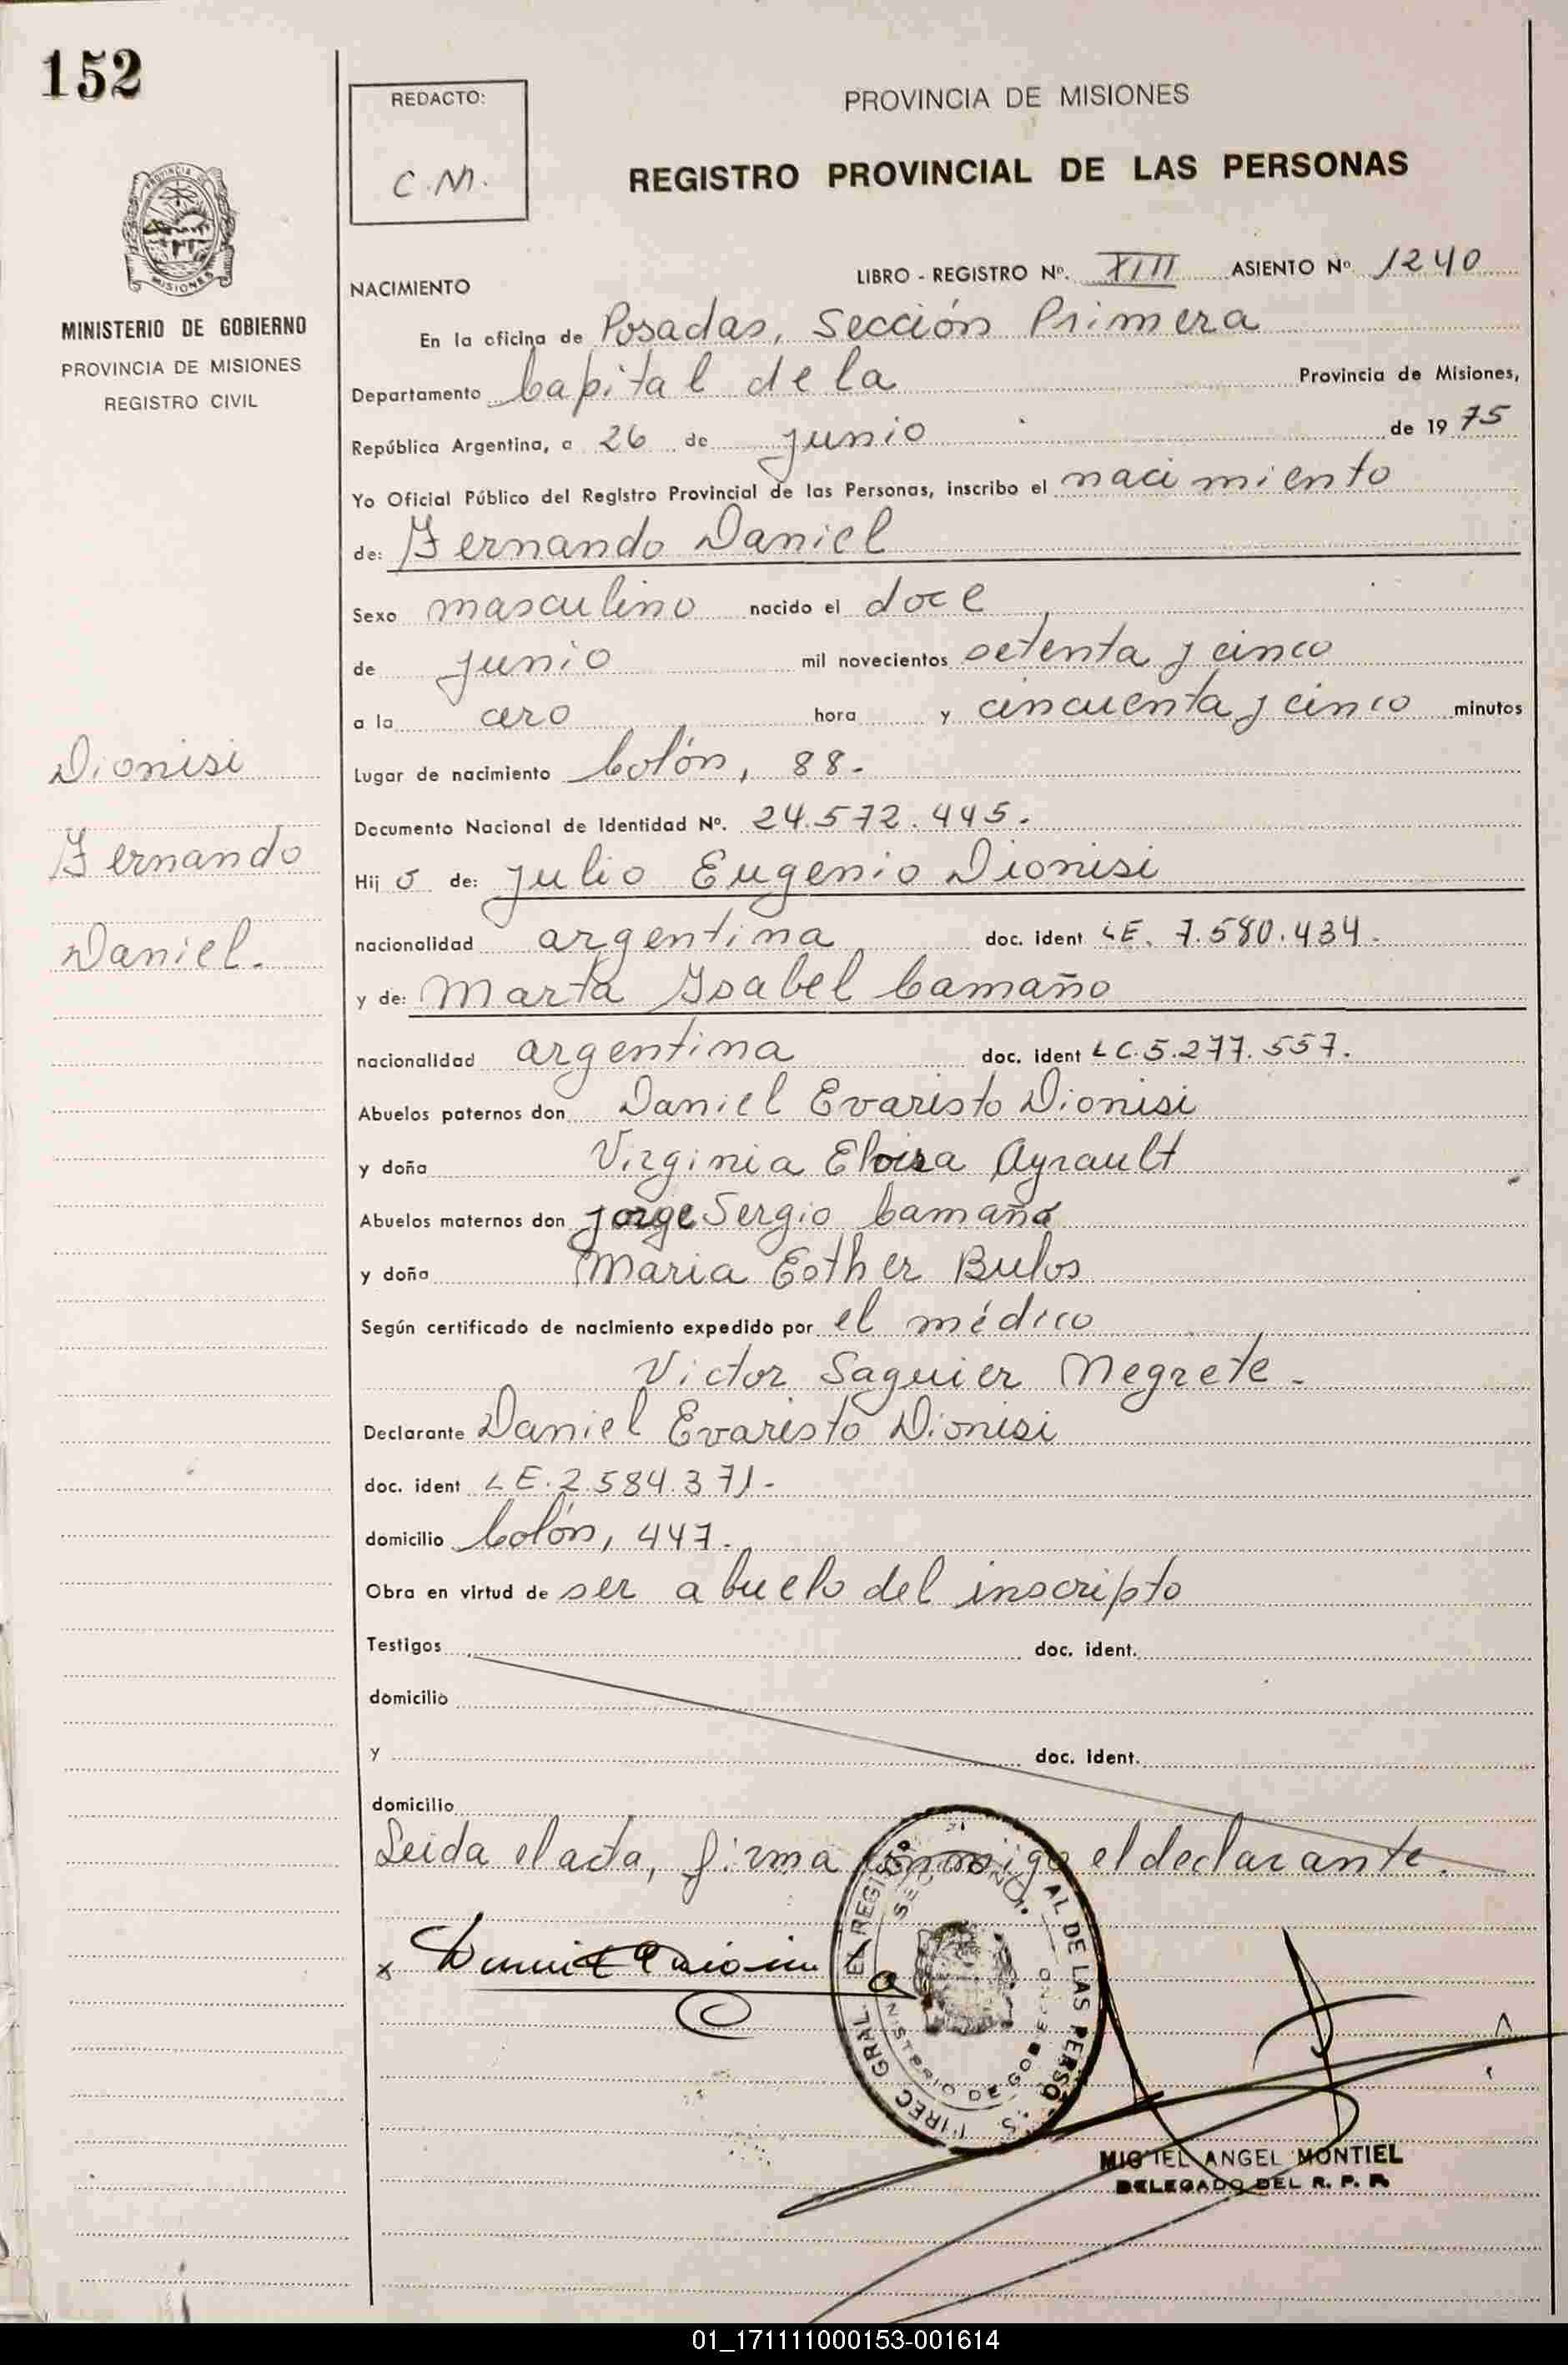 152
PROVINCIA DE
MISIONES
MINISTERIO DE GOBIERNO
PROVINCIA DE MISIONES
REGISTRO CIVIL
Dionisi
Fernando
Daniel.
REDACTO:
C.M.
PROVINCIA DE MISIONES
REGISTRO PROVINCIAL DE LAS PERSONAS
NACIMIENTO
LIBRO - REGISTRO Nº. XIII ASIENTO Nº 1240
En la oficina de Posadas, Sección Primera
Departamento Capital de la Provincia de Misiones,
República Argentina, a 26 de junio de 1975
Yo Oficial Público del Registro Provincial de las Personas, inscribo el nacimiento
de: Fernando Daniel
Sexo masculino nacido el doce
de junio mil novecientos setenta y cinco
a la cero hora y cincuenta y cinco minutos
Lugar de nacimiento Colón, 88.
Documento Nacional de Identidad Nº. 24.572.445.
Hijo de: Julio Eugenio Dionisi
nacionalidad argentina doc. ident LE. 7.580.434.
y de: Marta Isabel Camaño
nacionalidad argentina doc. ident LC. 5.277.557.
Abuelos paternos don Daniel Evaristo Dionisi
y doña Virginia Eloisa Ayrault
Abuelos maternos don Jorge Sergio Camaño
y doña Maria Esther Bulos
Según certificado de nacimiento expedido por el médico
Victor Saguier Negrete.
Declarante Daniel Evaristo Dionisi
doc. ident LE. 2.584.371.
domicilio Colón, 447.
Obra en virtud de ser abuelo del inscripto
Testigos doc. ident.
domicilio
y doc. ident.
domicilio
Leida el acta, firma conmigo el declarante.
x
MIGUEL ANGEL MONTIEL
DELEGADO DEL R. P. P.
01_171111000153-001614